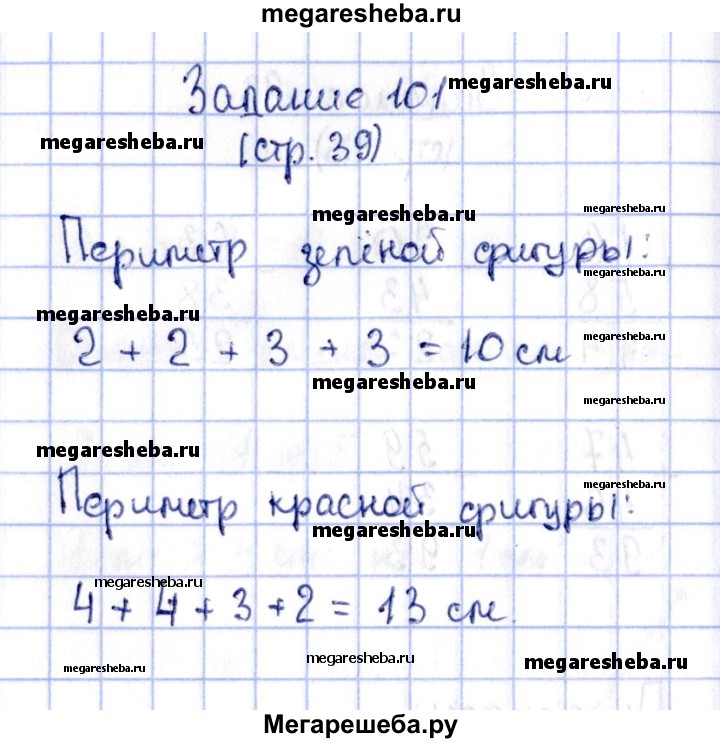 megaresheba.ru
Задание 101 megaresheba.ru
megaresheba.ru (стр. 39)
megaresheba.ru megaresheba.ru
Периметр зелёной фигуры:
megaresheba.ru
megaresheba.ru
2 + 2 + 3 + 3 = 10 см megaresheba.ru
megaresheba.ru megaresheba.ru
megaresheba.ru
megaresheba.ru
Периметр красной фигуры:
megaresheba.ru megaresheba.ru
megaresheba.ru megaresheba.ru
4 + 4 + 3 + 2 = 13 см.
megaresheba.ru megaresheba.ru megaresheba.ru
Мегарешеба.ру